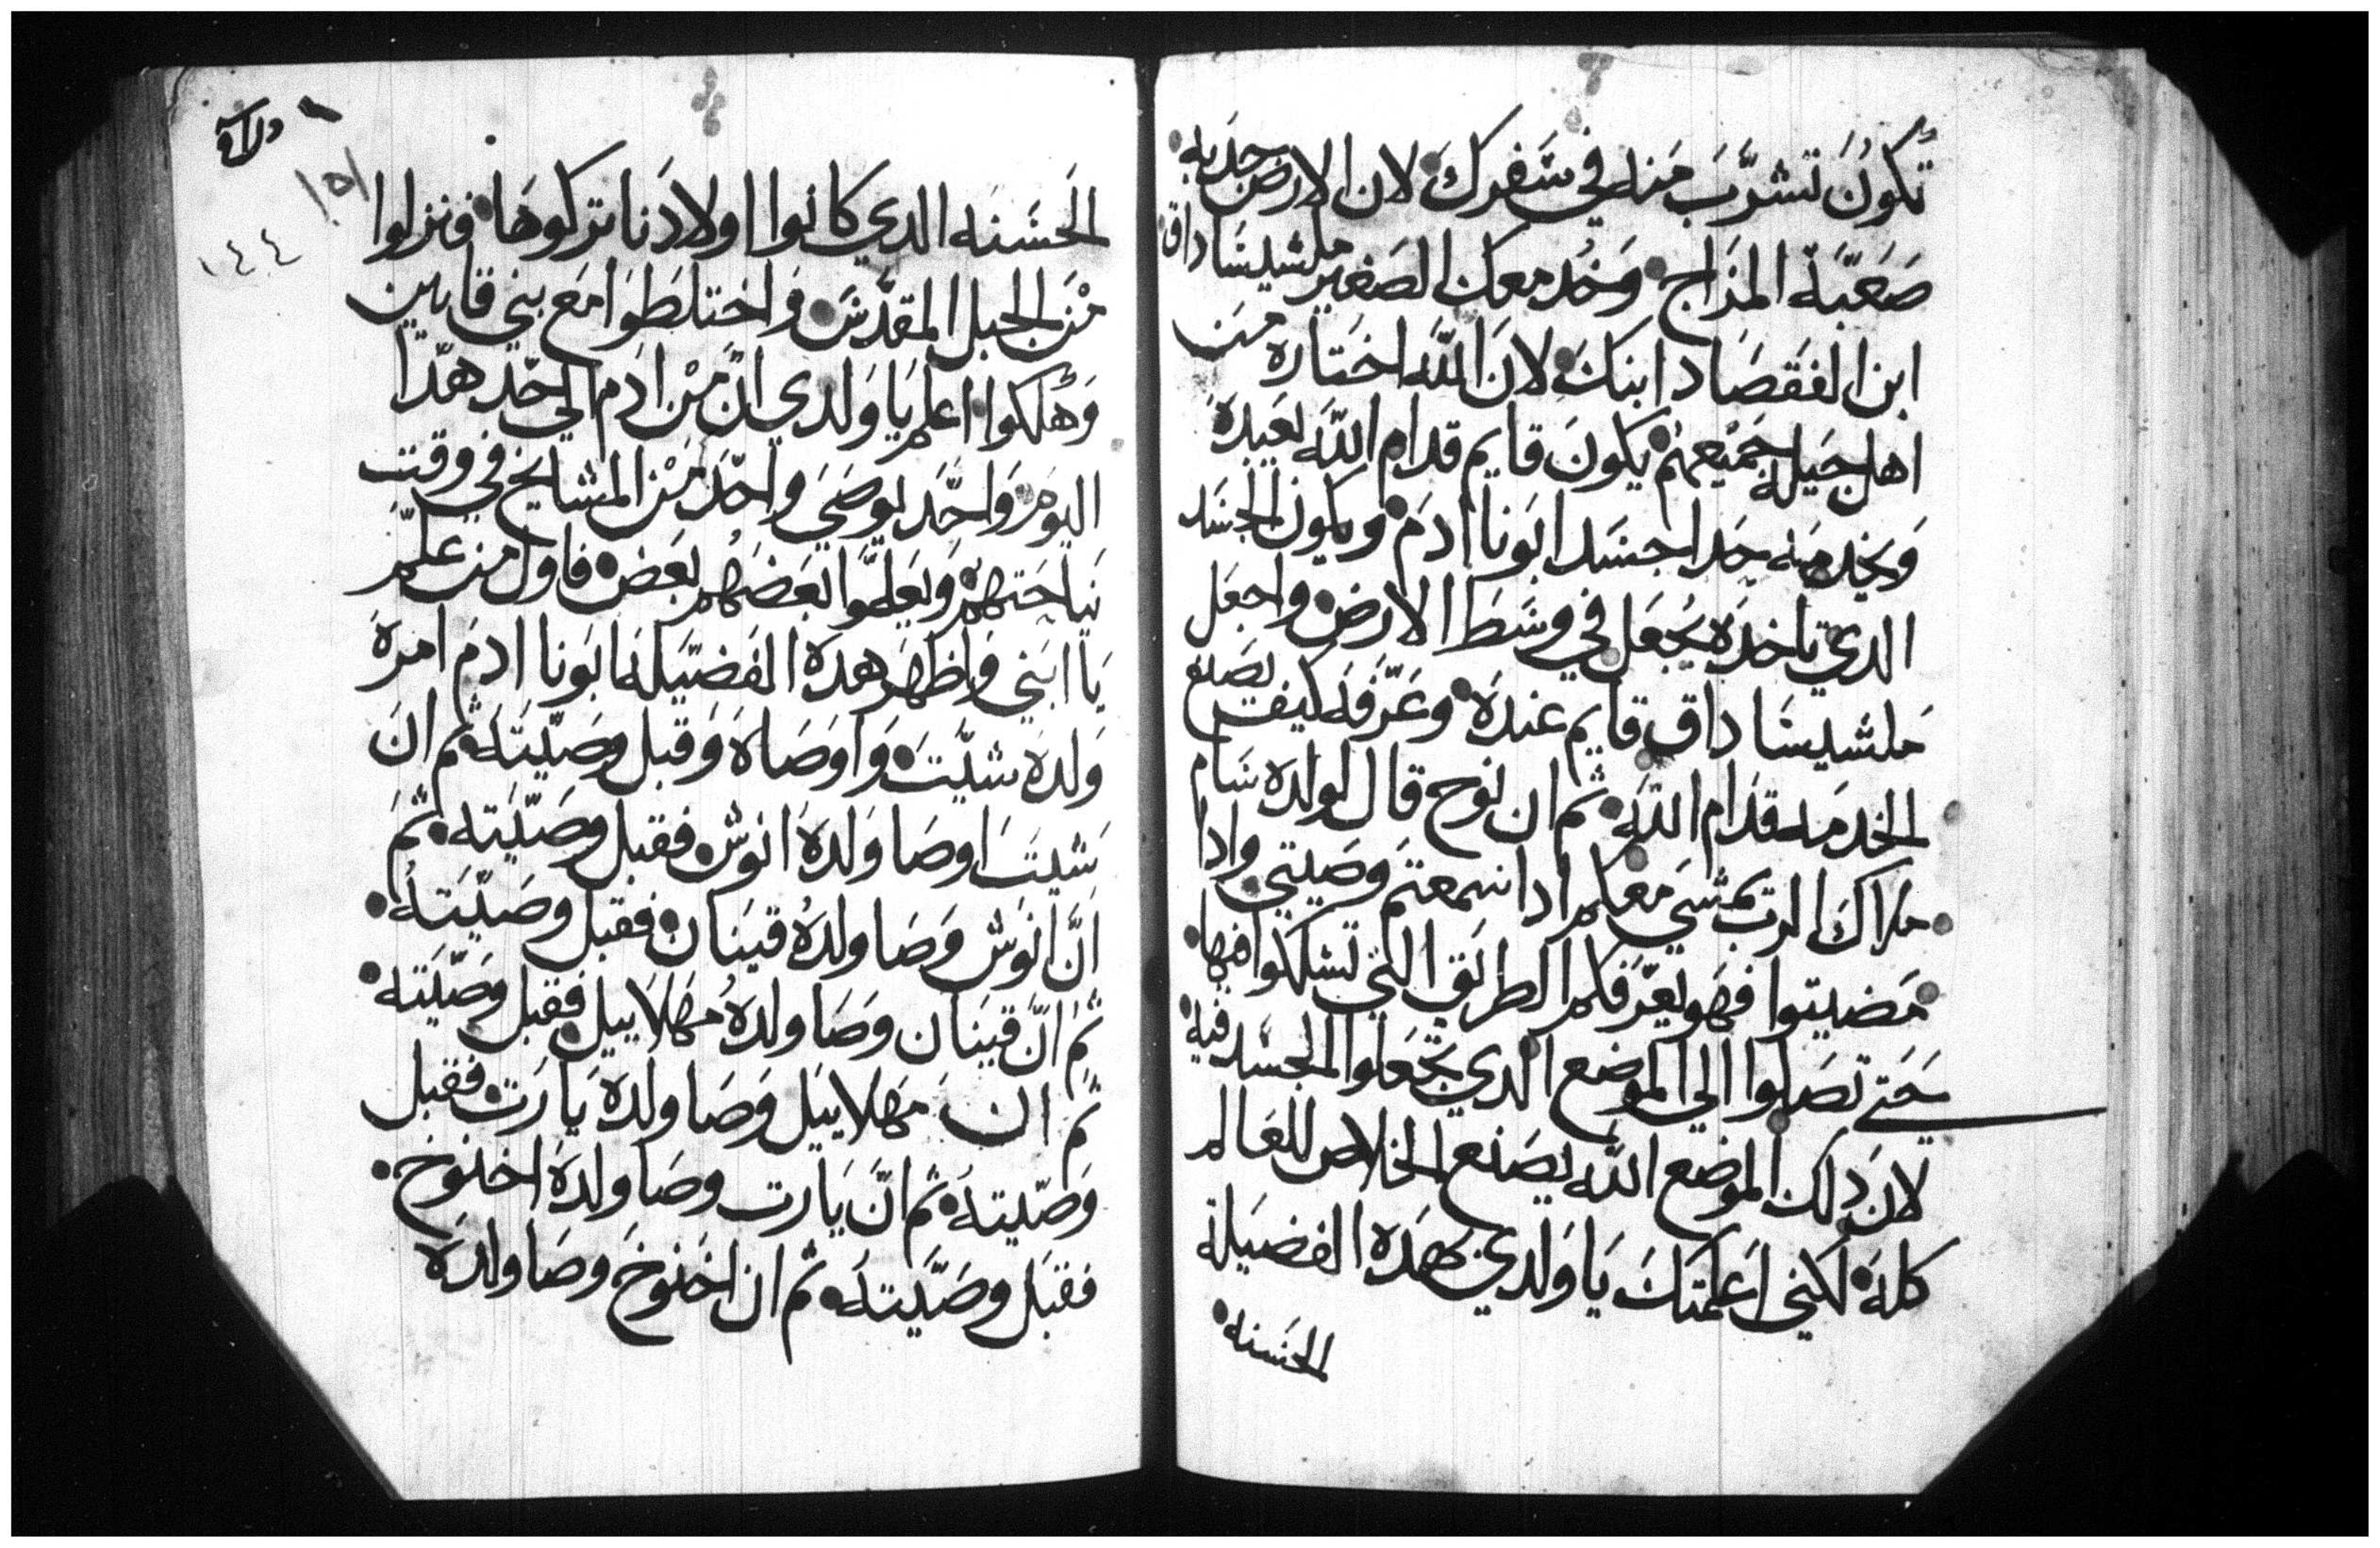 تكون تشرب منه في سفرك لان الارض جدبه
صعبة المزاج وخد معك الصغير ملشيساداق
ابن الفقصاد ابنك لان الله اختاره من
اهل جيله جميعهم يكون قايم قدام الله يعبده
ويخدمه حدا جسد ابونا ادم ويكون الجسد
الدي تاخده يجعل في وسط الارض واجعل
ملشيساداق قايم عنده وعرفه كيف يصنع
الخدمه قدام الله ثم ان نوح قال لولده سام
ملاك الرب يمشي معكم ادا سمعتم وصيتي وادا
مضيتوا فهو يعرفكم الطريق التي تسلكوا فيها
حتي تصلوا الي الموضع الدي تجعلوا الجسد فيه
لان دلك الموضع الله يصنع الخلاص للعالم
كله لكني اعلمتك يا ولدي بهده الفضيلة
الحسنه
١٥١
١٤٤
الحسنه الدي كانوا اولادنا تركوها ونزلوا
من الجبل المقدس واختلطوا مع بني قايين
وهلكوا اعلم يا ولدي ان من ادم الي حد هدا
اليوم واحد يوصي واحد من المشايخ في وقت
نياحتهم ويعلموا بعضهم بعض فاول من علم
يا ابني واظهر هده الفضيله ابونا ادم امره
ولده شيت واوصاه وقبل وصيته ثم ان
شيت اوصا ولده انوش فقبل وصيته ثم
ان انوش وصا ولده قينان فقبل وصيته
ثم ان قينان وصا ولده مهلاييل فقبل وصيته
ثم ان مهلاييل وصا ولده يارت فقبل
وصيته ثم ان يارت وصا ولده اخنوخ
فقبل وصيته ثم ان اخنوخ وصا ولده